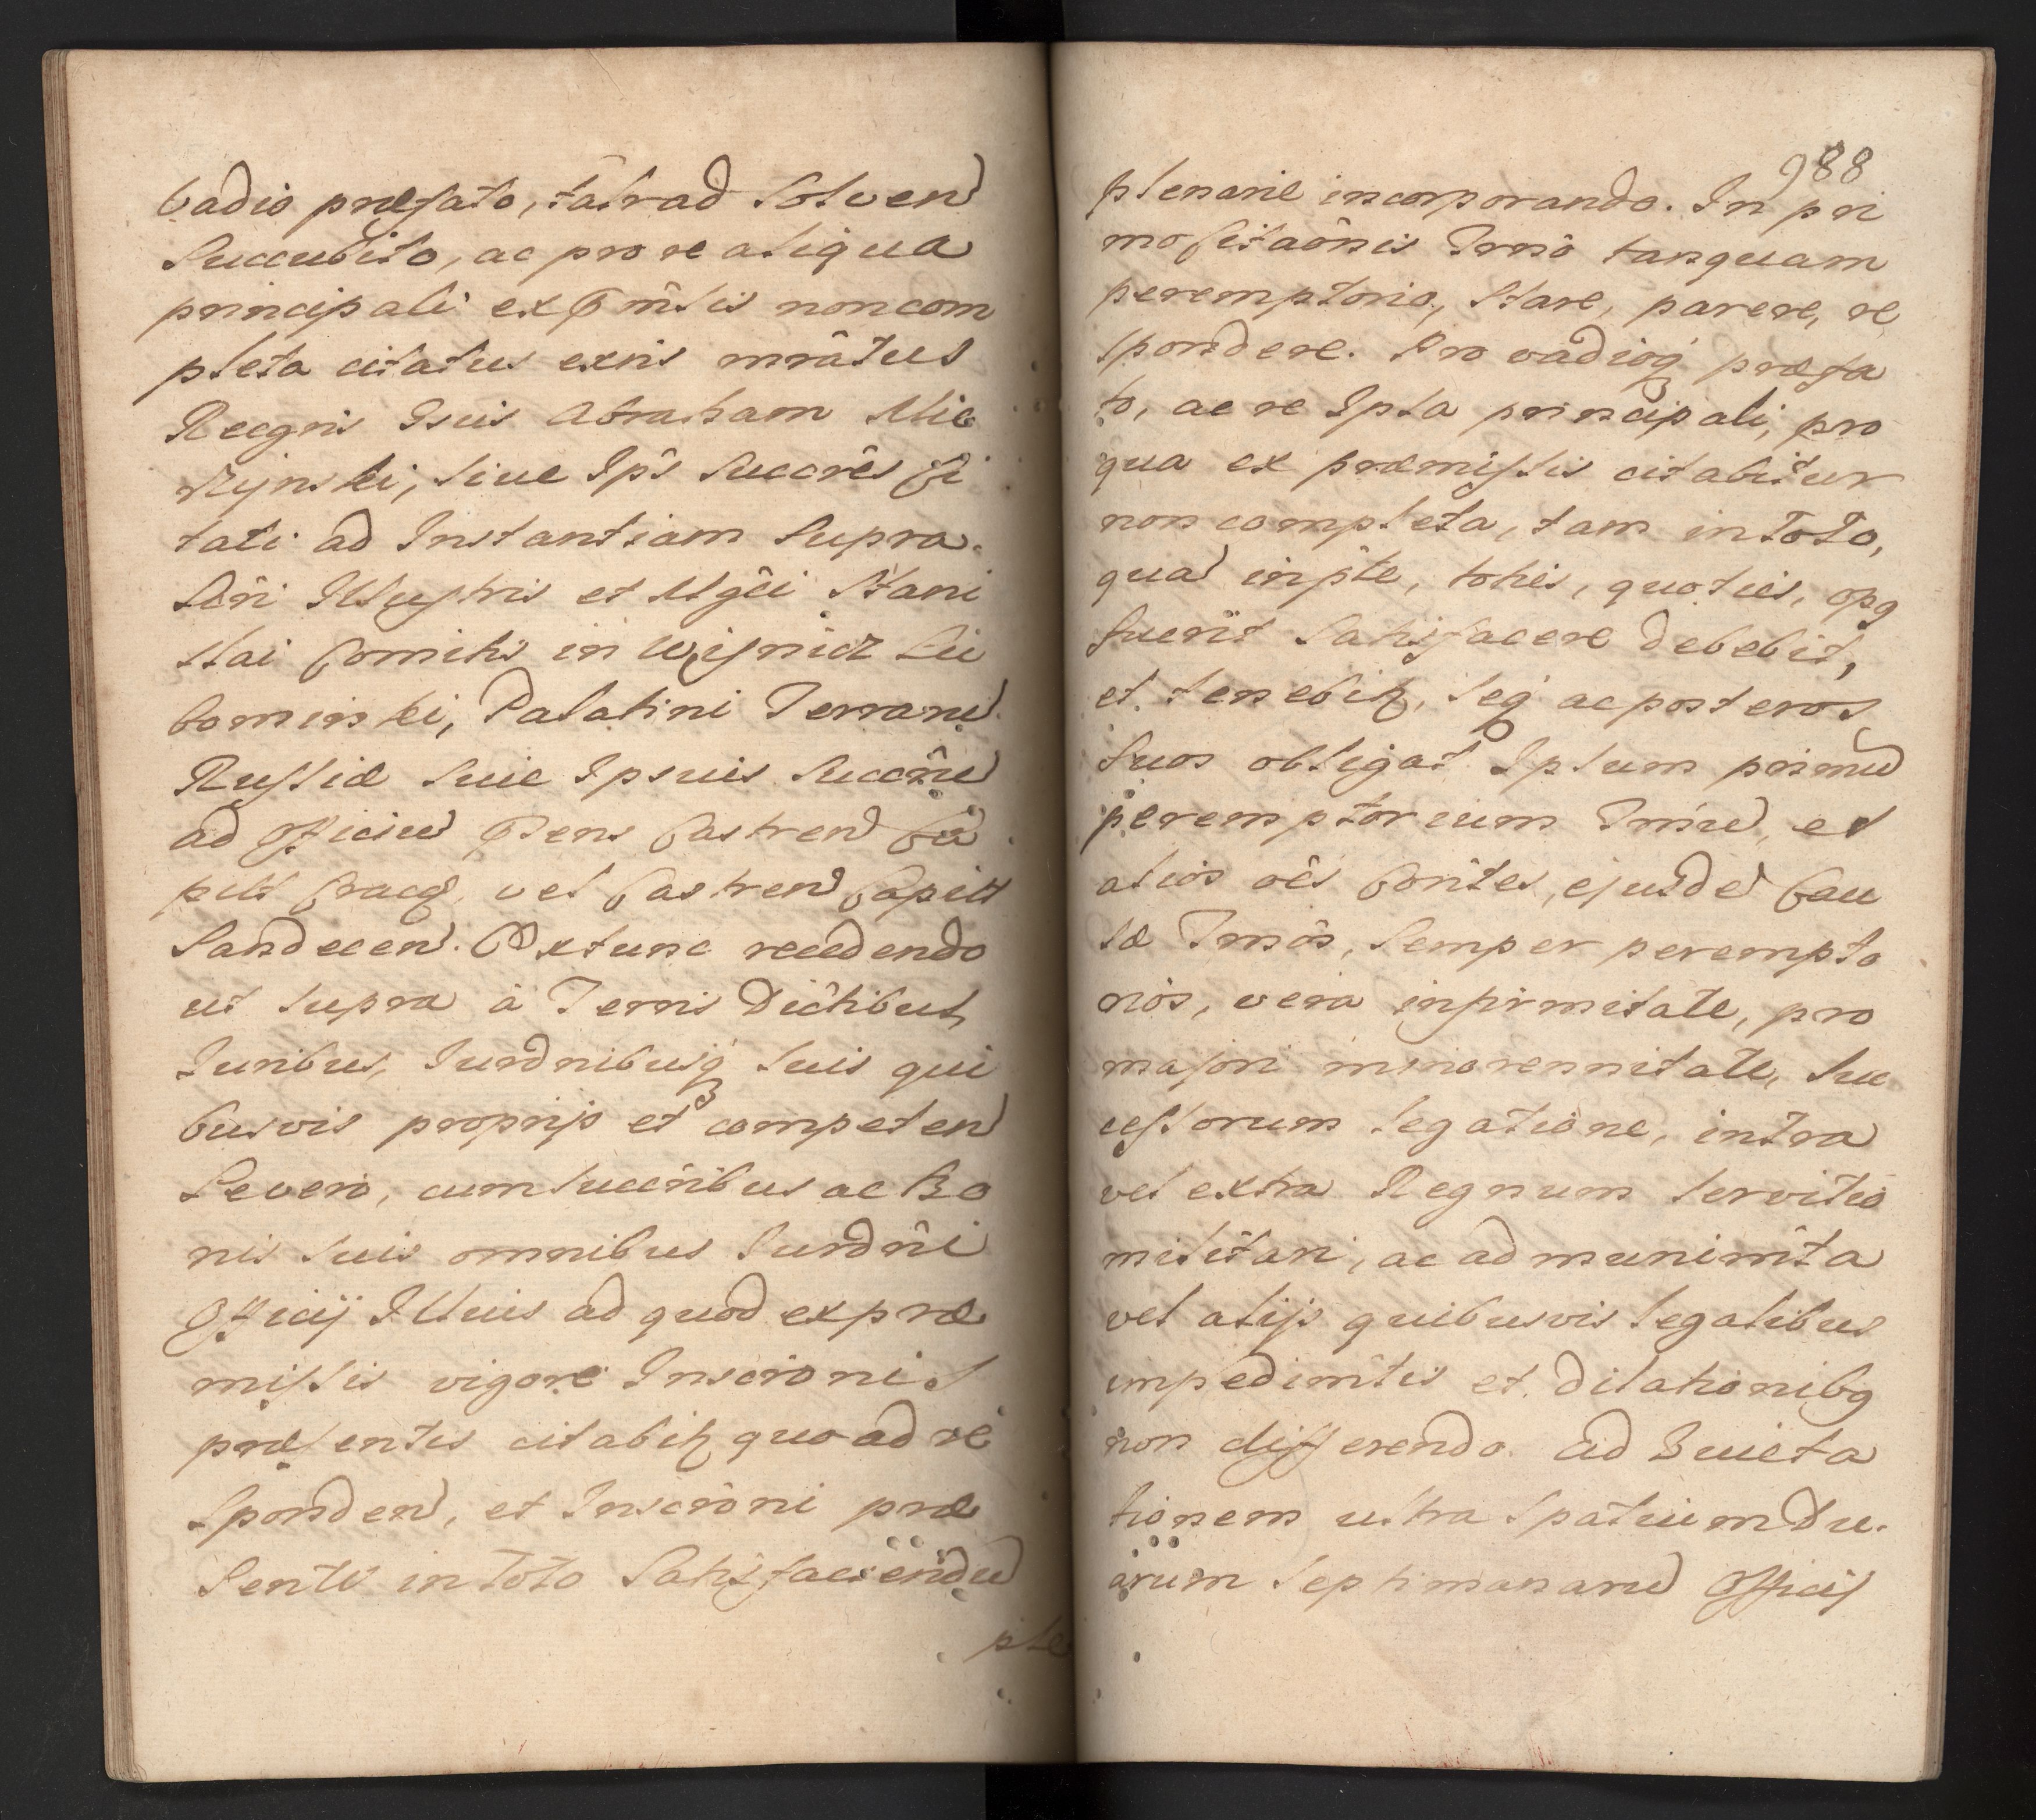 vadio præfato, talr ad Solven
Succubito, ac pro re aliqua
principali ex Pmsis non com
pleta citatus exns mrâtus
Recgns Gsus Abraham Mie
rzÿnski, sive Ips Succrês Ci
tati ad Instantiam Supra.
Scri Illustris et Mgci Stani
slai Comitis in Wisnicz Lu
bomirski, Palatini Terrarũ
Russiæ sive Ipsius Succrũ
ad Officiũ Pens Castren Ca
pitt Cracq vel Castren Capitt
Sandecen. Extunc recedendo
ut supra à Terris Dictibus,
Juribus, Jurdnibusq suis qui
busvis proprijs et competen
Severo, cum succribus ac Bo
nis suis omnibus Jurdni
Officij Illius ad quod ex præ
missis vigore Inscrônis
præsentis citabitr quo ad re
sponden, et Inscrôni præ
senti in toto Satisfaciendũ
ple
988
plenarie incorporando. In pri
mo Citaônis Trmô tanquam
peremptorio, Stare, parere, re
spondere. Pro vadioq præfa
to, ac re Ipsa principali, pro
qua ex præmissis citabitur
non completa, tam in toto,
qua in pte, toties, quoties, opq
fuerit Satisfacere debebit,
et tenebitr, seq ac posteros
suos obligat Ipsum primũ
peremptorium Trmũ, et
alios oês Contes, ejusdẽ Cau
sæ Trmôs, Semper perempto
riôs, vera infirmitate, pro
majori minorennitate, Suc
cessorum legatione, intra
vel extra Regnum servitio
militari, ac ad munimta
vel alijs quibusvis legalibus
impedimtis et dilationibq
non differendo. Ad Quieta
tionem ultra Spatium du.
arum Septimanarũ Officij